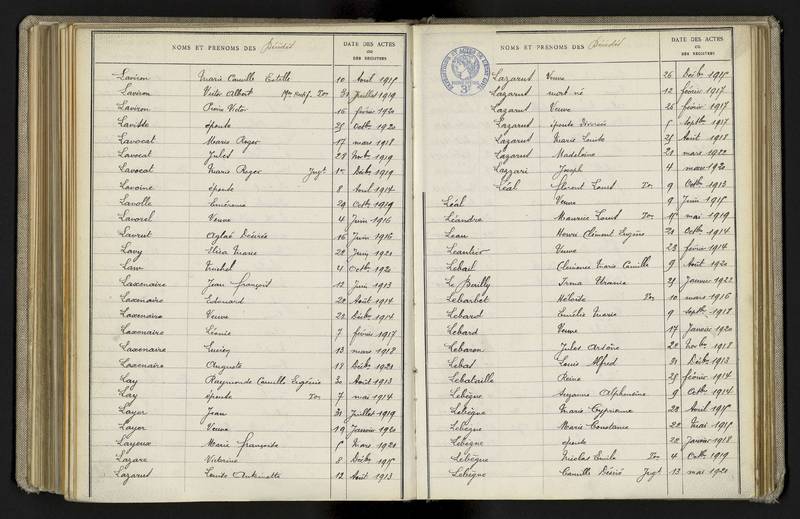 NOMS ET PRÉNOMS DES Décédés
DATE DES ACTES
OU
DES REGISTRES
Laviron Marie Camille Estelle 10 Avril 1915
Laviron Victor Albert Ton 31 Juillet 1919
Laviron Pierre Victor 16 février 1920
Lavisse épouse 25 Octbre 1920
Lavocat Marie Roger 17 mars 1918
Lavocat Jules 28 Novbre 1919
Lavocat Marie Roger Jugt 1er Décbre 1919
Lavoine épouse 8 Avril 1914
Lavolle 29 Octbre 1919
Lavorel Veuve 4 Juin 1916
Lavrut Aglaé Désirée 16 Juin 1916
Lavy Elisa Marie 20 Juin 1920
Law 4 Octbre 1920
Laxenaire Jean françois 12 Juin 1913
Laxenaire Edouard 20 Août 1914
Laxenaire Veuve 22 Décbre 1914
Laxenaire Léonie 7 février 1917
Laxenaire Lucien 13 mars 1918
Laxenaire Auguste 18 Décbre 1920
Lay Raymonde Camille Eugénie 30 Août 1913
Lay épouse Ton 7 mai 1914
Layer Jean 31 Juillet 1919
Layer Veuve 19 Janvier 1920
Layeux Marie françoise 5 Mars 1920
Lazare Victorine 8 Décbre 1915
Lazarus Louise Antoinette 12 Août 1913
NOMS ET PRÉNOMS DES Décédés
DATE DES ACTES
OU
DES REGISTRES
Lazarus Veuve 26 Décbre 1915
Lazarus mort né 12 février 1917
Lazarus Veuve 26 février 1917
Lazarus épouse divorcée 5 Septbre 1917
Lazarus Marie Louise 25 Août 1918
Lazarus Madeleine 21 mars 1922
Lazzari Joseph 4 mars 1920
Léal florent Louis Ton 9 Octbre 1913
Léal Veuve 9 Juin 1915
Léandre Maurice Louis Ton 15 mai 1919
Leau Henri Clément Eugène 21 Octbre 1914
Léautier Veuve 23 février 1914
Lebail Clémence Marie Camille 9 Août 1920
Le Bailly Irma Uranie 25 Janvier 1922
Lebarbet Héloïse Ton 10 mars 1916
Lebard Emélie Marie 9 Septbre 1918
Lebard Veuve 17 Janvier 1920
Lebaron Jules Arsène 20 Novbre 1918
Lebas Louis Alfred 31 Décbre 1913
Lebataille Reine 25 février 1914
Lebègue Suzanne Alphonsine 9 Octbre 1914
Lebègue Marie Cyprienne 28 Avril 1915
Lebègue Marie Constance 20 Mai 1915
Lebègue épouse 20 Janvier 1918
Lebègue Nicolas Emile Ton 4 Octbre 1919
Lebègue Camille Désiré Jugt 13 mai 1920